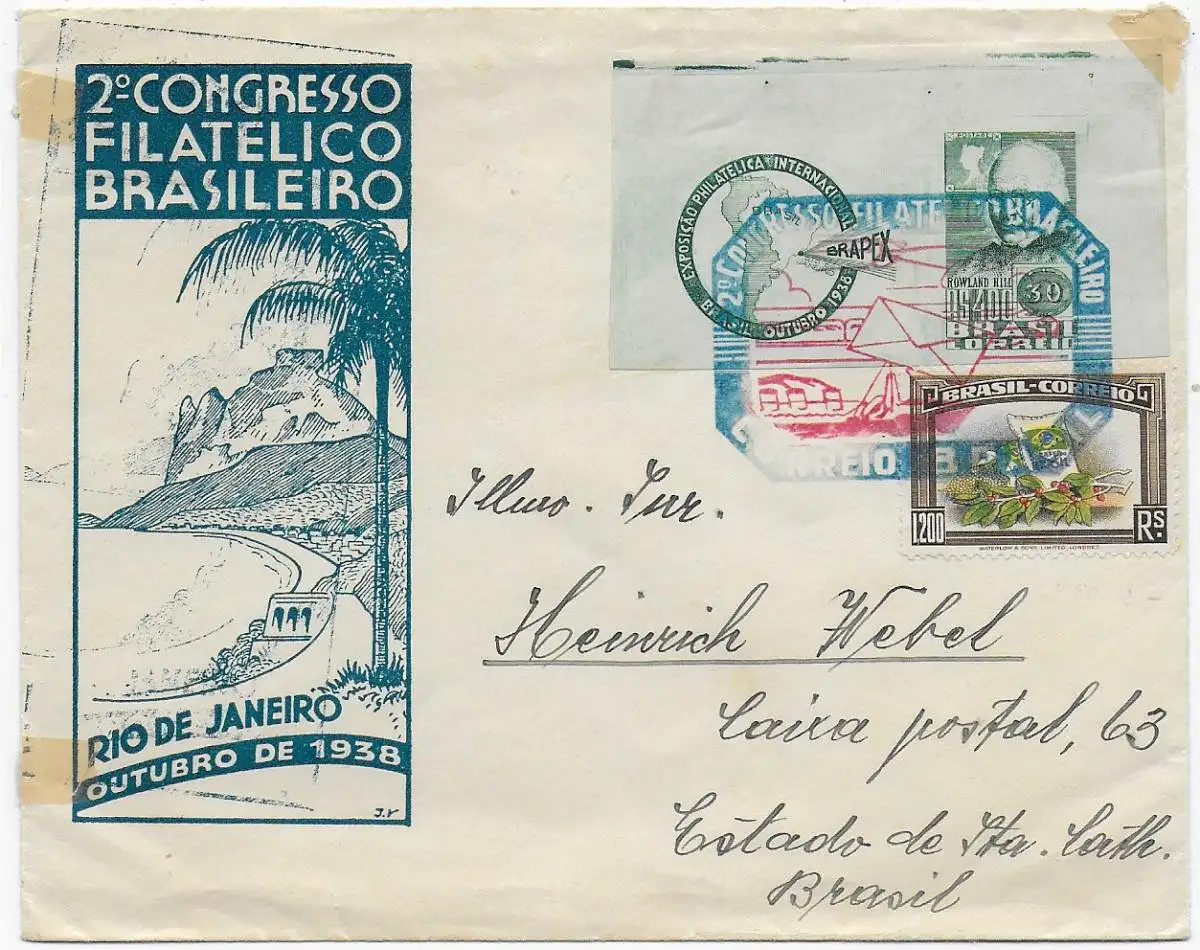 2º CONGRESSO
FILATELICO
BRASILEIRO
RIO DE JANEIRO
OUTUBRO DE 1938
J.V
EXPOSIÇÃO PHILATELICA INTERNACIONAL
BRASIL
BRAPEX
BRASIL OUTUBRO 1938
POSTAGE
ROWLAND HILL
RS400 30
BRASIL
CORREIO
2º CONGRESSO FILATELICO BRASILEIRO
CORREIO BRASIL
BRASIL-CORREIO
1200 RS
WATERLOW & SONS LIMITED, LONDRES
Illmo. Snr.
Heinrich Webel
Caixa postal, 63
Estado de Sta. Cath.
Brasil